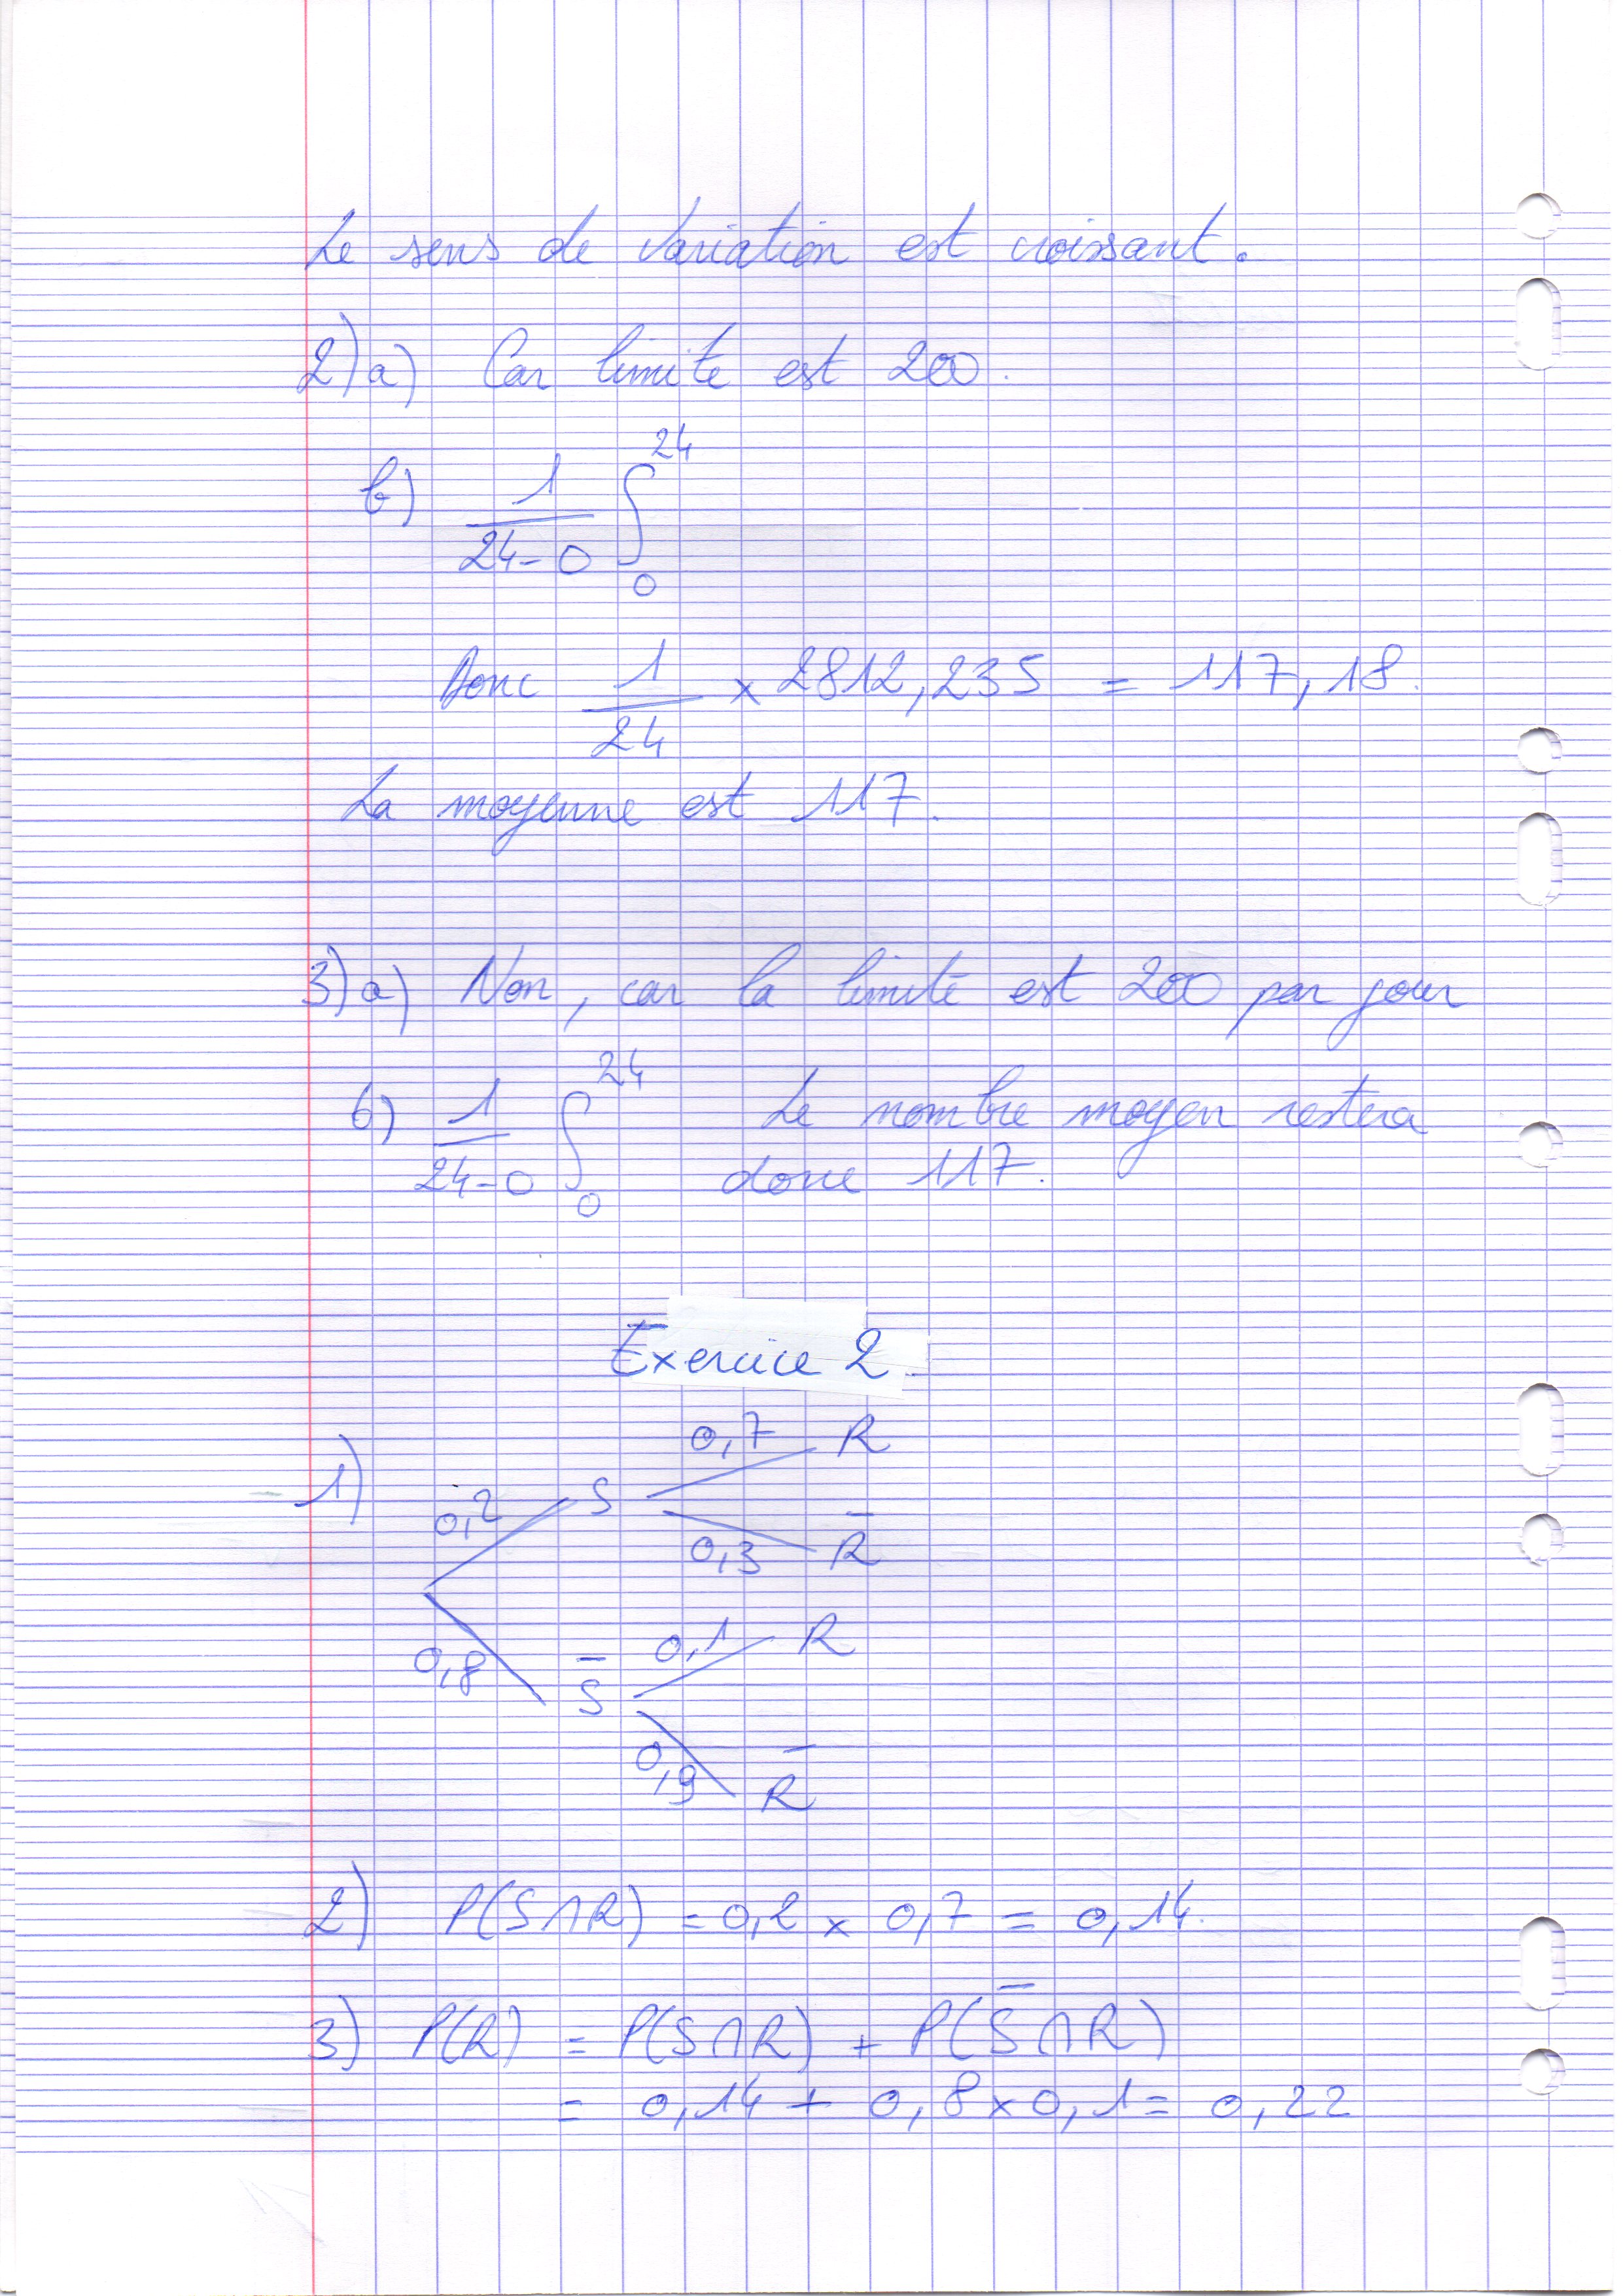 Le sens de variation est croissant.
2) a) Car limite est 200.
b) 1/(24-0) ∫ 0 24
Donc 1/24 × 2812,235 = 117,18.
La moyenne est 117.
3) a) Non, car la limite est 200 par jour
b) 1/(24-0) ∫ 0 24 Le nombre moyen restera
donc 117.
Exercice 2.
1)
0,7 R
0,2 S
0,3 R̅
0,1 R
0,8 S̅
0,9 R̅
2) P(S∩R) = 0,2 × 0,7 = 0,14.
3) P(R) = P(S∩R) + P(S̅∩R)
= 0,14 + 0,8×0,1 = 0,22